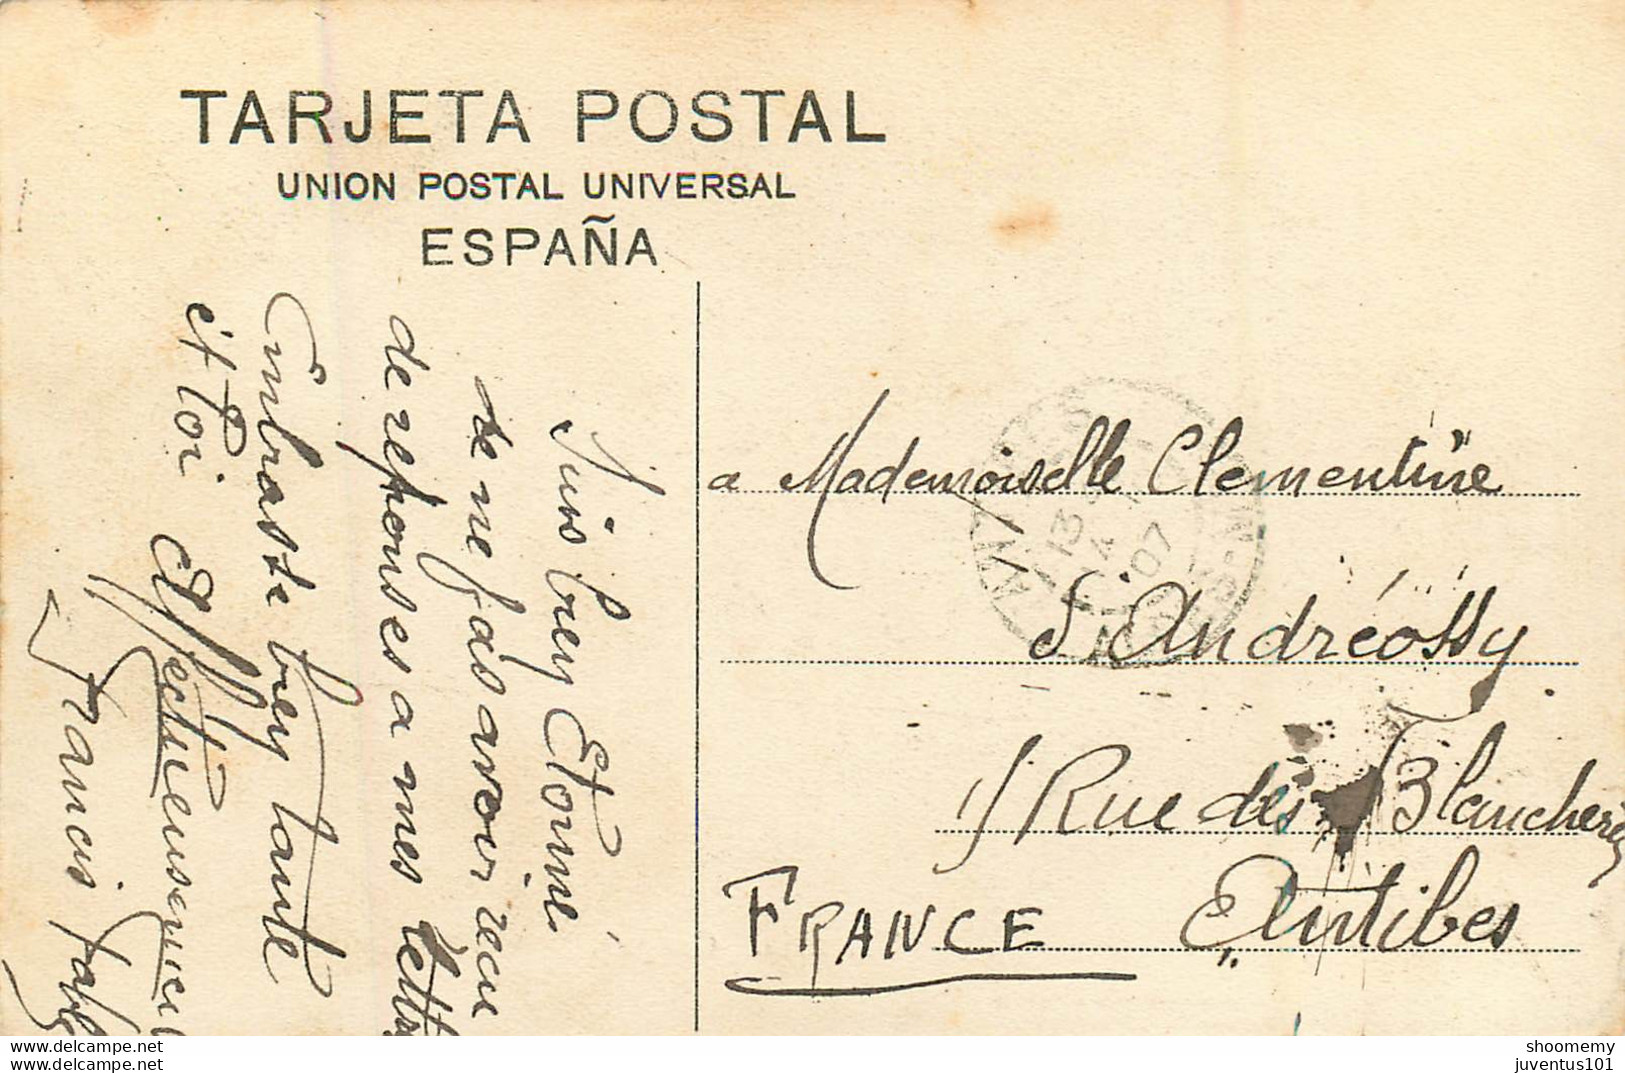 TARJETA POSTAL
UNION POSTAL UNIVERSAL
ESPAÑA
Suis bien Etonné
de ne pas avoir recu
de reponses a mes lettr
Embrasse bien tante
et toi
Affectueusement
Francis
a Mademoiselle Clementine
S. Andréossy
1 Rue des Blancheries
Antibes
FRANCE
13
07
www.delcampe.net
www.delcampe.com
shoomemy
juventus101